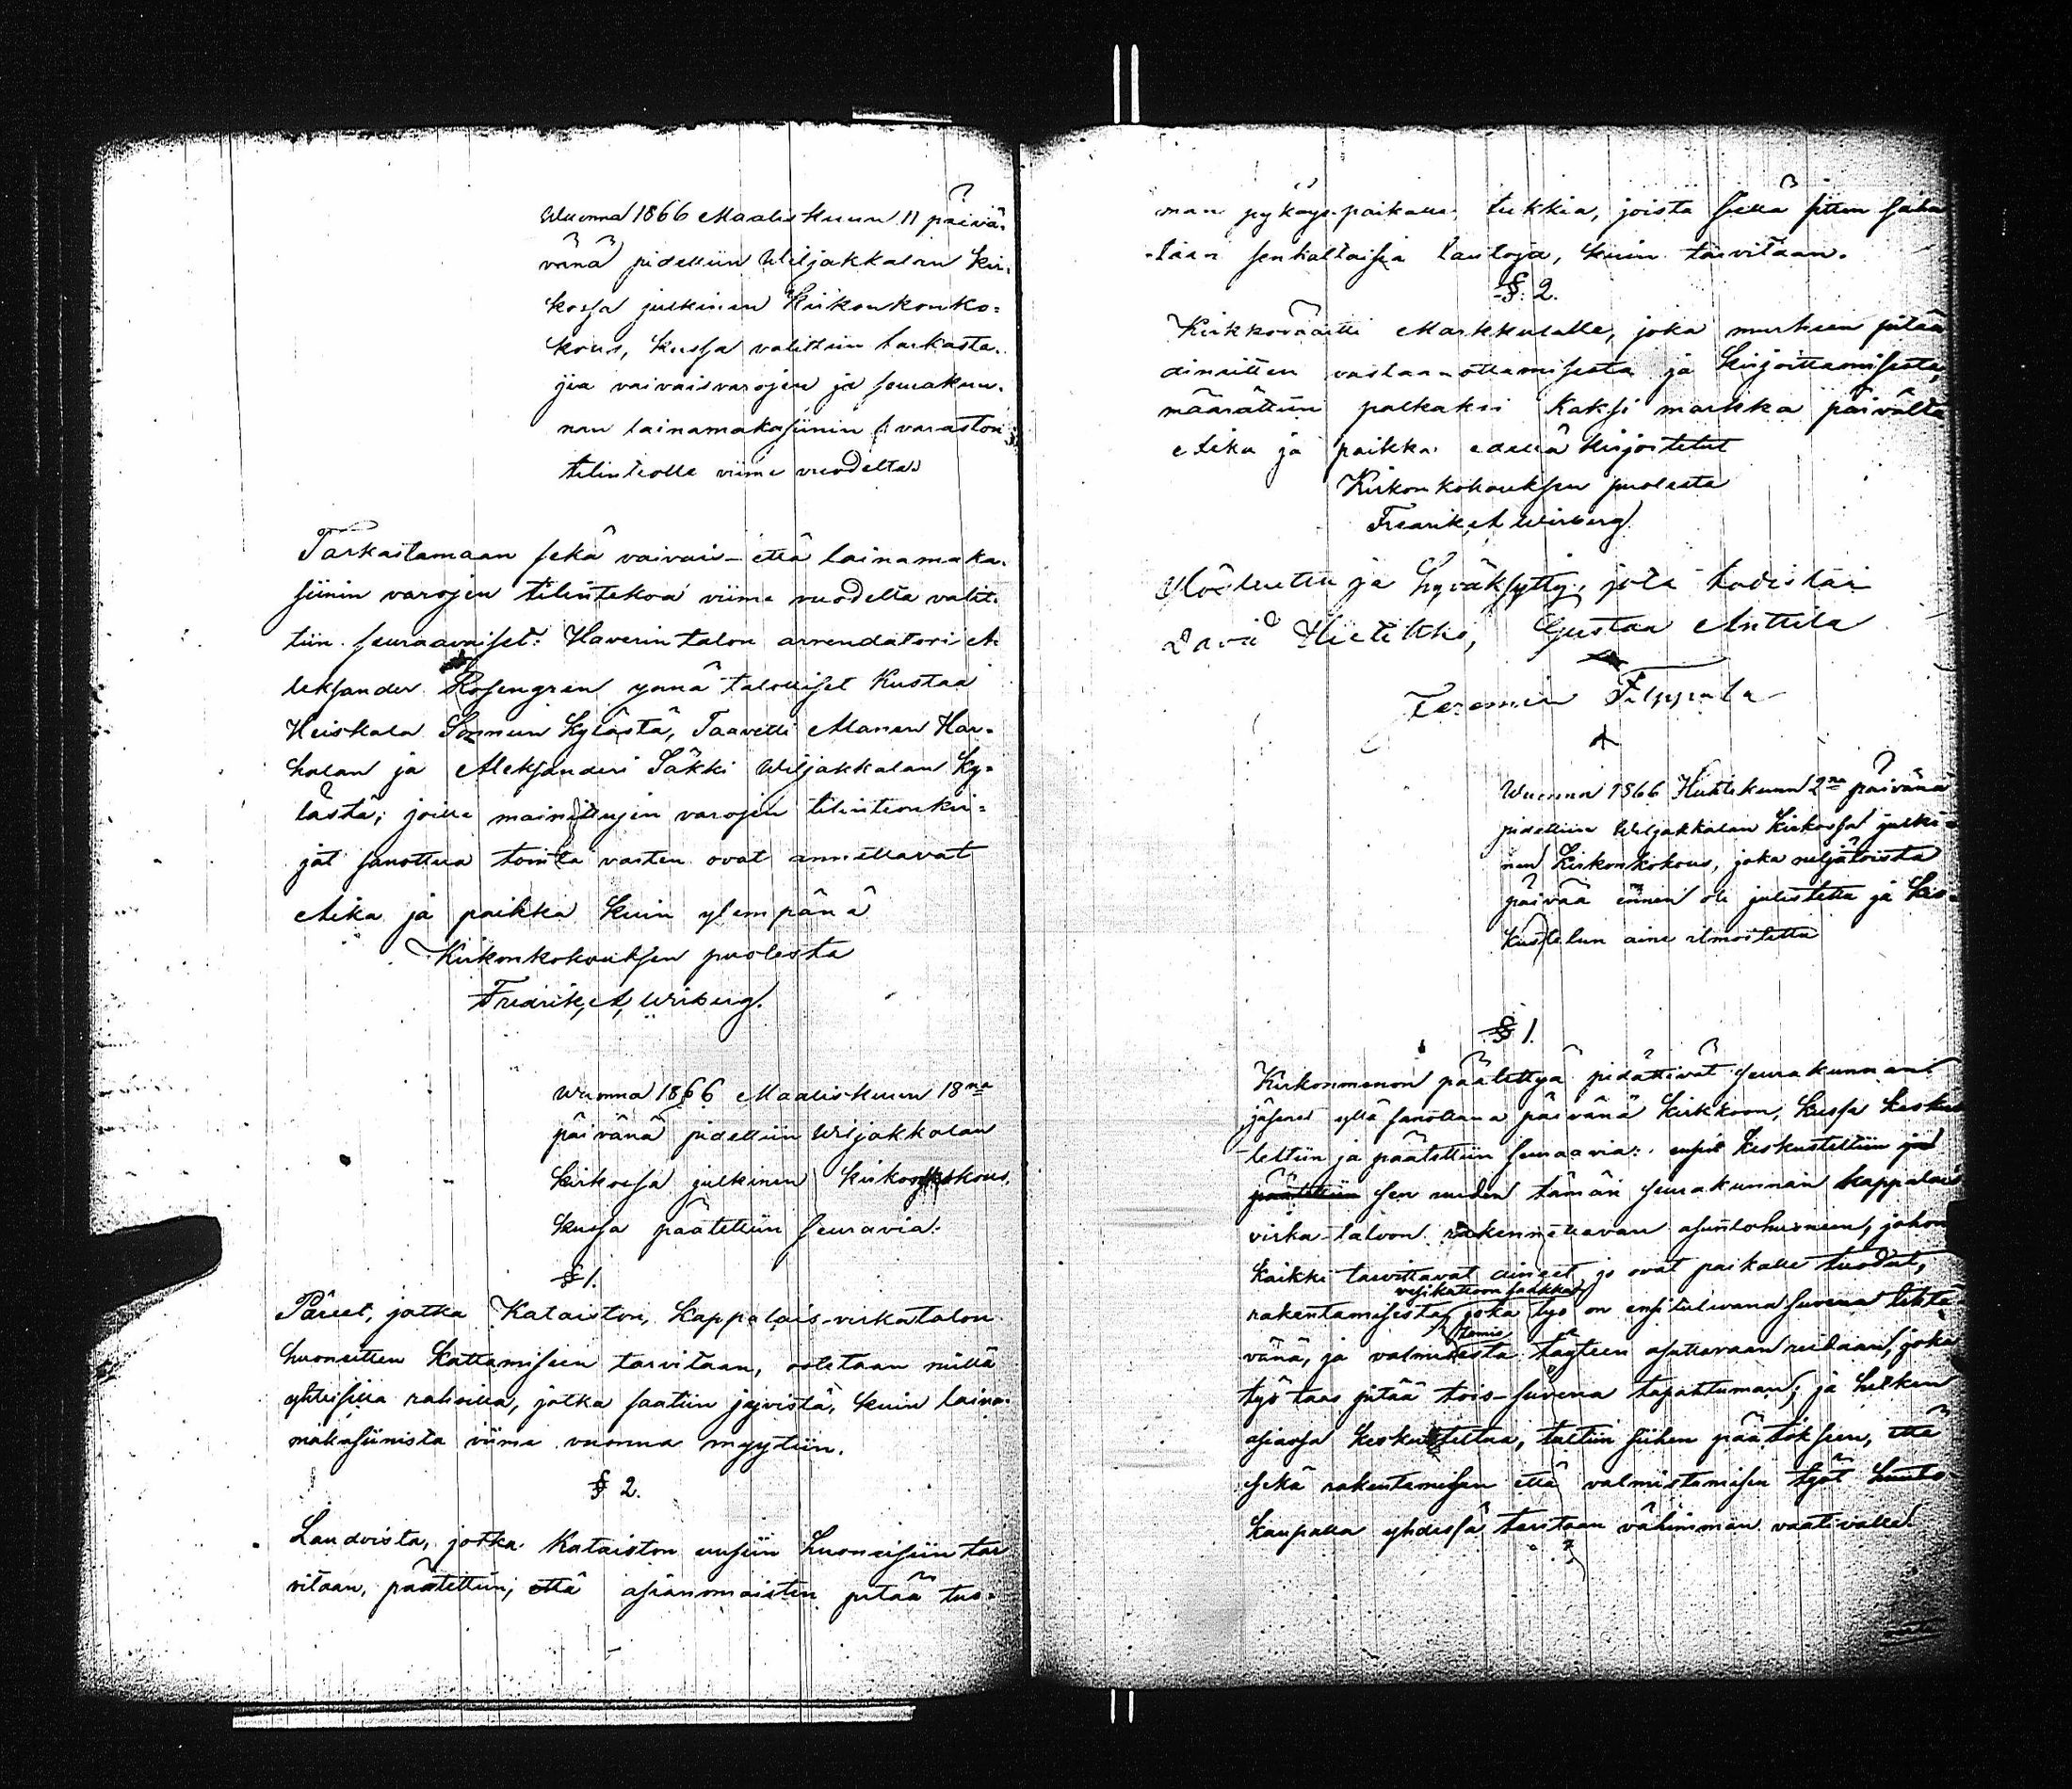 Wuonna 1866 Maaliskuun 11 päivä-
vänä pidettiin Wiljakkalan kir-
kossa julkinen Kirkonkonko-
kous, kussa valittiin tarkasta-
jia vaivaisvarojen ja seurakun-
nan lainamakasiinin varaston
tilinteolle viime vuodelta.
Tarkastamaan sekä vaivais- että lainamaka-
siinin varojen tilintekoa viime vuodelta valit-
tiin seuraavaiset: Haverin talon arrendatori A-
leksander Rosengren ynnä talolliset Kustaa
Heiskala kylästä, Taavetti Manen Har-
halan ja Aleksanderi Säkki Wiljakkalan ky-
lästä, joille mainittujen varojen tilinteonki-
jät sanottua tointa varten ovat annettavat
Aika ja paikka kuin ylempänä
Kirkonkokouksen puolesta
Fredrik, A, Wirberg.
Wuonna 1866 Maaliskuun 18na
päivänä pidettiin Wiljakkalan
kirkossa julkinen kirkonkokous,
kussa päätettiin seuravia:
§ 1.
Päreet, jotka Kataiston, kappalais-virkatalon
huoneitten kattamiseen tarvitaan, ostetaan niillä
yhteisillä rahoilla, jotka saatiin jyvistä, kuin laina-
makasiinista viime vuonna myytiin.
§ 2.
Laudoista, jotka Kataiston uusiin huoneisiin tar
vitaan, päätettiin, että asianomaisten pitää tuo-
man pykäys-paikalle tukkia, joista siellä sitten saha
-taan senkaltaisia lautoja, kuin tarvitaan.
§. 2.
Kirkkoväärti Markkulalle, joka murheen pitää
aineitten vastaan-ottamisesta ja kirjoittamisesta,
määrättiin palkaksi kaksi markka päivältä
Aika ja paikka edellä kirjoitetut
Kirkonkokouksen puolesta
Fredrik, A Wirberg.
Ylösluettu ja hyväksytty, jota todistaa
Davi Hietikko, Gustaa Anttila
Jeremia Filppula
Wuonna 1866 Huhtikuun 2na päivänä
pidettiin Wiljakkalan kirkossa julki-
nen Kirkonkokous, joka neljätoista
päivää ennen oli julistettu ja kes-
kustelun aine ilmoitettu
§ 1.
Kirkonmenon päätettyä pidättivät seurakunnan
jäsenet yllä sanottuna päivänä kirkkoon, kussa kesku
teltiin ja päätettiin seuraavia: ensin keskusteltiin ja
päätettiin sen uuden tämän seurakunnan kappalais
virka-taloon rakennettavan asuntohuoneen, johon
kaikki tarvittavat aineet jo ovat paikalle tuodut,
vesikattoon saakka
rakentamisesta, joka työ on ensitulevana suvena tehtä
tamis
vänä, ja valmistesta täyteen asuttavaan reilaan, joka
työ taas pitää tois-suvena tapahtuman, ja hetken
asiassa keskusteltua, tultiin siihen päätökseen, että
sekä rakentamisen että valmistamisen työt huuto
kaupalla yhdessä tarjotaan vähimmän vaativalle.